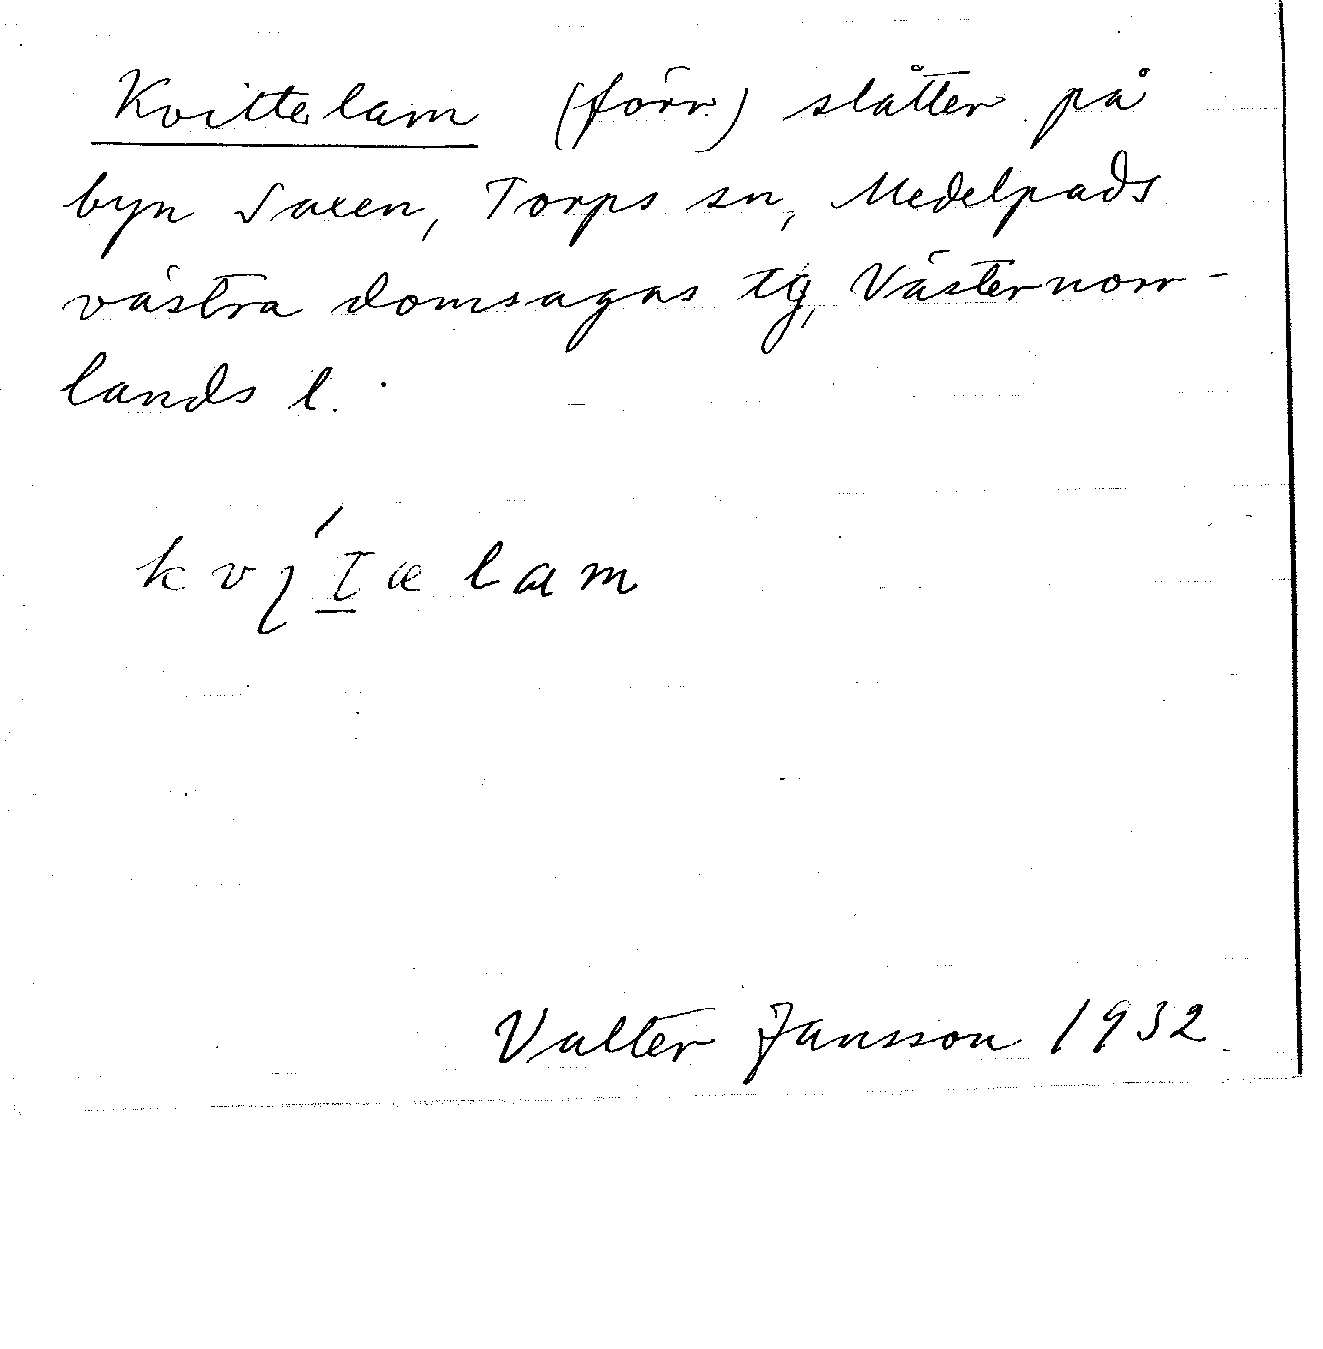 Kvittelam (förr) slåtter på
byn Saxen, Torps sn, Medelpads
västra domsagas tg, Västernorr-
lands l.
Valter Jansson 1932